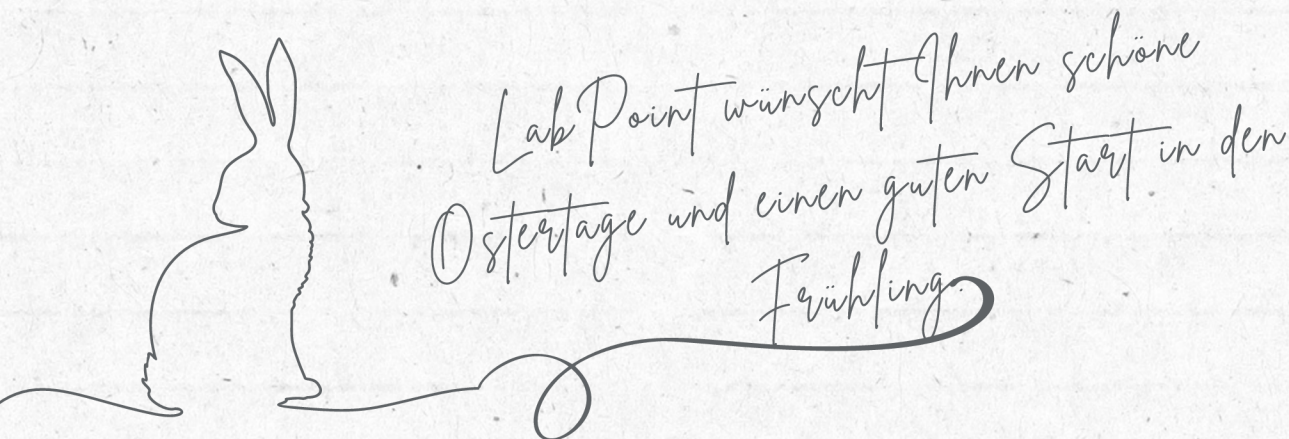 LabPoint wünscht Ihnen schöne
Ostertage und einen guten Start in den
Frühling.